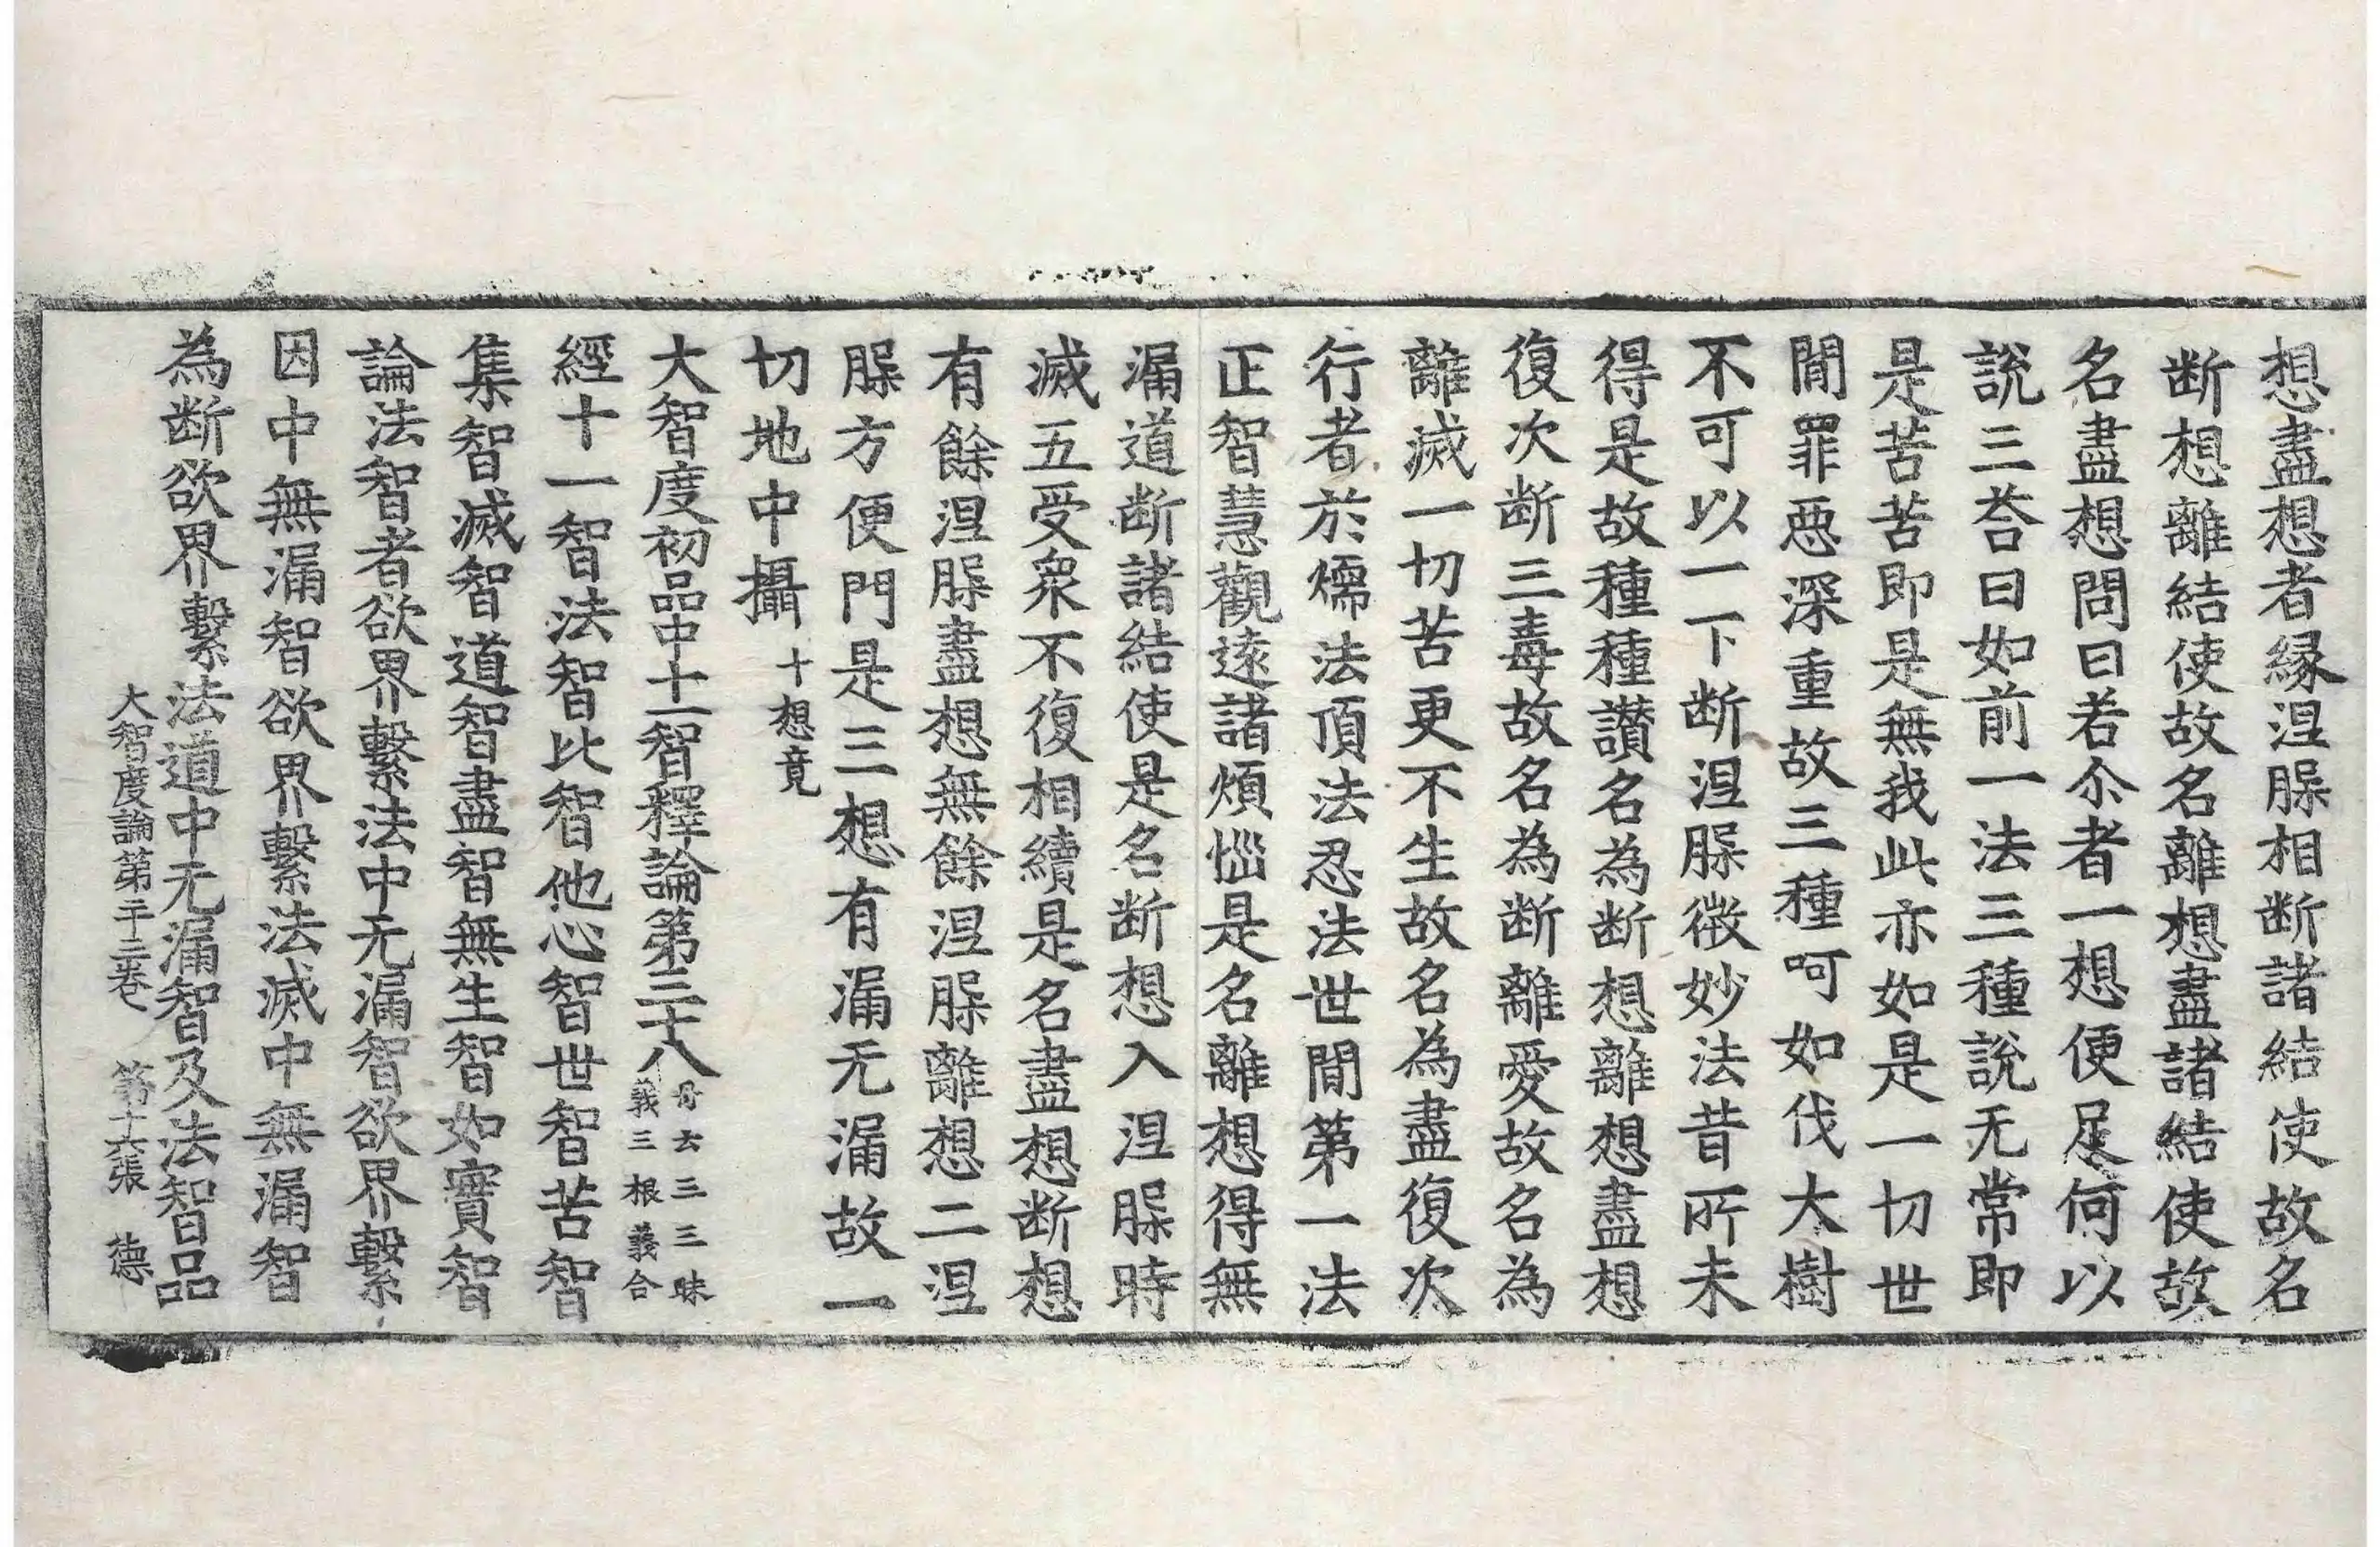 想盡想者縁涅槃相断諸結使故名
断想離結使故名離想盡諸結使故
名盡想問曰若尒者一想便足何以
說三荅曰如前一法三種說无常即
是苦苦即是無我此亦如是一切世
閒罪惡深重故三種呵如伐大樹
不可以一下断涅槃微妙法昔所未
得是故種種讃名為断想離想盡想
復次断三毒故名為断離愛故名為
離滅一切苦更不生故名為盡復次
行者於煗法頂法忍法世閒第一法
正智慧觀遠諸煩惱是名離想得無
漏道断諸結使是名断想入涅槃時
滅五受衆不復相續是名盡想断想
有餘涅槃盡想無餘涅槃離想二涅
槃方便門是三想有漏无漏故一
切地中攝 十想竟
大智度初品中十一智釋論第三十八 丹云三三昧義三根義合
經十一智法智比智他心智世智苦智
集智滅智道智盡智無生智如實智
論法智者欲界繫法中无漏智欲界繫
因中無漏智欲界繫法滅中無漏智
為断欲界繫法道中无漏智及法智品
大智度論第二十三卷 第十六張 德